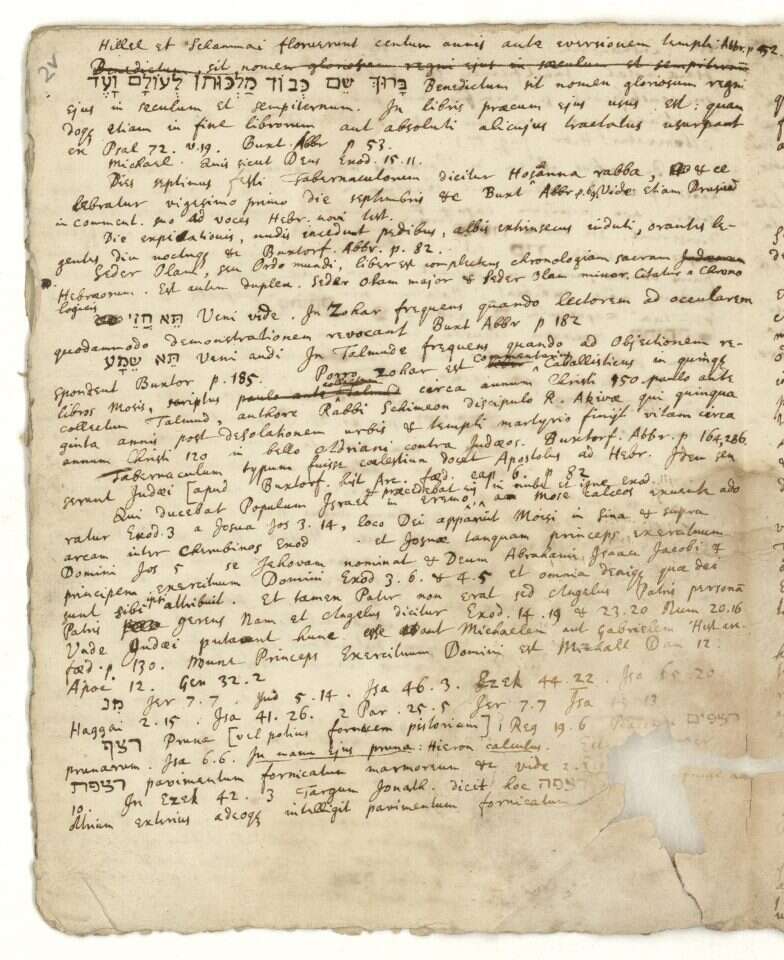 2v
Hillel et Schammai floruerunt centum annis ante eversionem templi. Abbr. p 52.
Benedictum sit nomen gloriosum regni ejus in sæculum et sempiternum
בָּרוּךְ שֵׁם כְּבוֹד מַלְכוּתוֹ לְעוֹלָם וָעֶד Benedictum sit nomen gloriosum regni
ejus in sæculum et sempiternum. In libris præcum ejus usus est: quan
doqꝫ etiam in fine librorum aut absoluti alicujus tractatus usurpant
ex Psal 72. v.19. Buxt. Abbr p 53.
Michael. Quis sicut Deus Exod. 15.11.
Dies septimus festi Tabernaculorum dicitur Hosanna rabba, & ce
lebratur vigesimo primo die septembris &c Buxt Abbr p. Vide etiam Drusium
in comment. suo ad voces Hebr. novi test.
Die expiationis, nudis incedunt pedibus, albis extrinsecus induti, orantes le-
gentes diu noctuqꝫ &c Buxtorf. Abbr. p. 82.
Seder Olam, seu Ordo mundi, liber est complectens chronologiam sacram Judæorum
Hebræorum. Est autem duplex. Seder Olam major & Seder Olam minor. Citatur a Chrono
logicis
תָּא חֲזֵי Veni vide. In Zohar frequens quando lectorem ad occularem
quodammodo demonstrationem revocant Buxt Abbr p 182
תָּא שְׁמַע Veni audi In Talmude frequens quando ad Objectionem re-
spondent Buxtor p. 185. Porro Zohar est commentarius Caballisticus in quinqꝫ
libros Mosis, scriptus paulo ante circa annum Christi 150 paulo ante
collectum Talmud, authore Rabbi Schimeon discipulo R. Akivæ qui quinqua
ginta annis post desolationem urbis & templi martyrio finijt vitam circa
annum Christi 120 in bello Adriani contra Judæos. Buxtorf. Abbr. p 164,286.
Tabernaculum typum fuisse cœlestium docet Apostolus ad Hebr. Idem sen
serunt Judæi [apud Buxtorf. hist Arc. fœd. cap 6. p 82
Qui ducebat Populum Israel in eremo, præcedebat in nube et igne Exod. a Mose calceos exuente ado
ratur Exod.3 a Josua Jos 3. 14, loco Dei apparuit Moisi in Sina & supra
arcam inter Cherubinos Exod et Josuæ tanquam princeps exercituum
Domini Jos 5 se Jehovam nominat & Deum Abrahami Isaaci Jacobi &
principem exercituum Domini Exod 3. 6. & 4.5 et omnia deniqꝫ quæ dei
sunt sibi ipsi attribuit. Et tamen Pater non erat sed Angelus Patris personā
Patris gerens Nam et Angelus dicitur Exod. 14. 19 & 23.20 Num 20.16
Unde Judæi putant hunc esse aut Michaelem aut Gabrielem Hist arc.
fœd. p. 130. Nunc Princeps Exercituum Domini est Michael Dan 12.
Apoc 12. Gen 32.2
Jer 7.7. Jud 5.14. Isa 46.3. Ezek 44.22. Isa 65.20.
Haggai 2.15. Isa 41.26. 2 Par. 25.5 Jer 7.7 Isa
רצף Pruna [vel potius fornicem pistoriam] 1 Reg 19.6 רצפים
prunarum. Isa 6.6. In manu ejus pruna: Hieron calculus.
רצפת pavimentum fornicatum marmoreum &c vide 2.
10. In Ezek 42. 3 Targum Jonath. dicit hoc רצפה
Atrium exterius adeoqꝫ intelligit pavimentum fornicatum